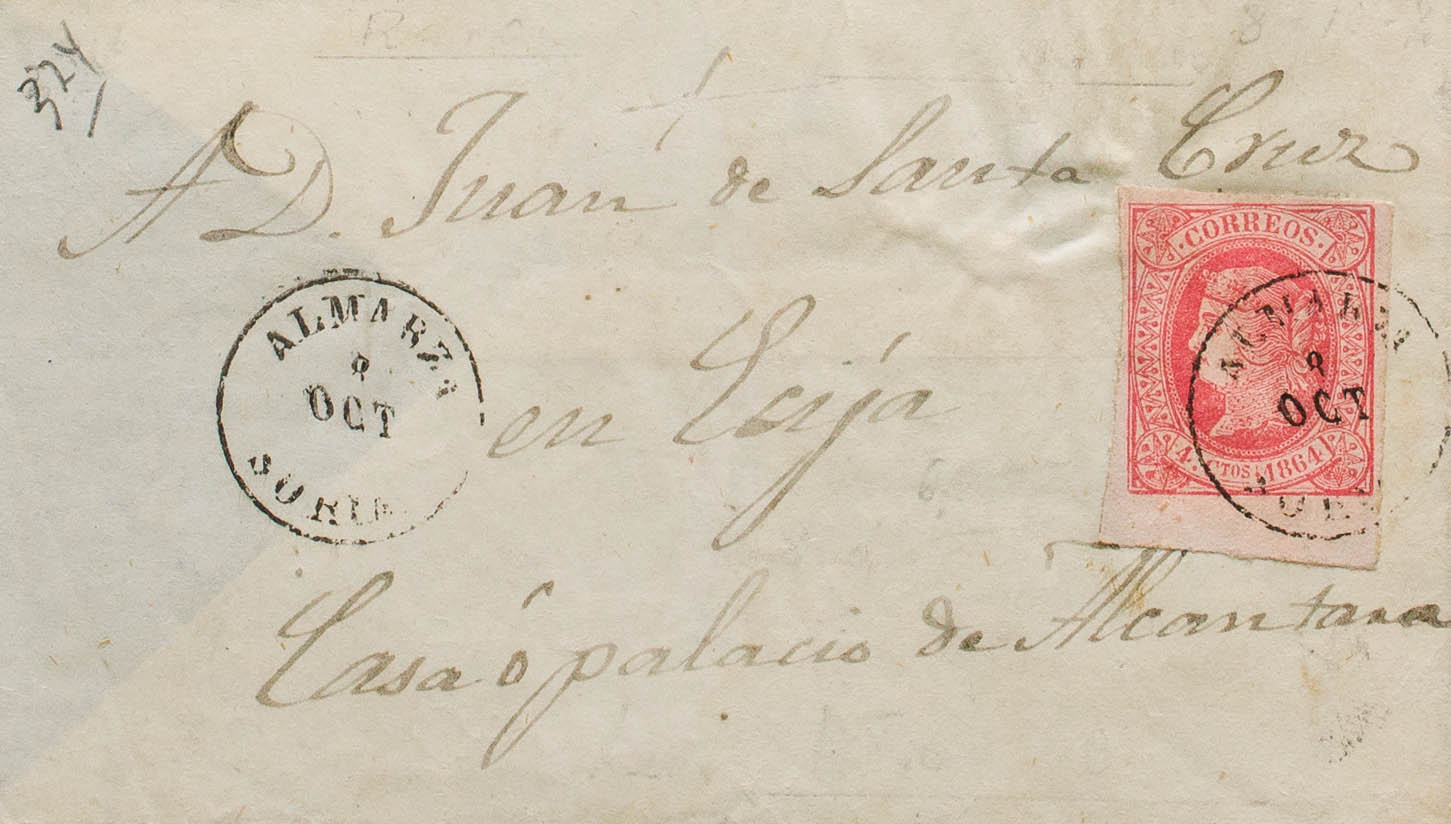 324
A D. Juan de Santa Cruz
CORREOS
ALMARZA
8
OCT
SORIA
en Ecija
ALMARZA
8
OCT
SORIA
4 CUARTOS 1864
Casa ó palacio de Alcantara